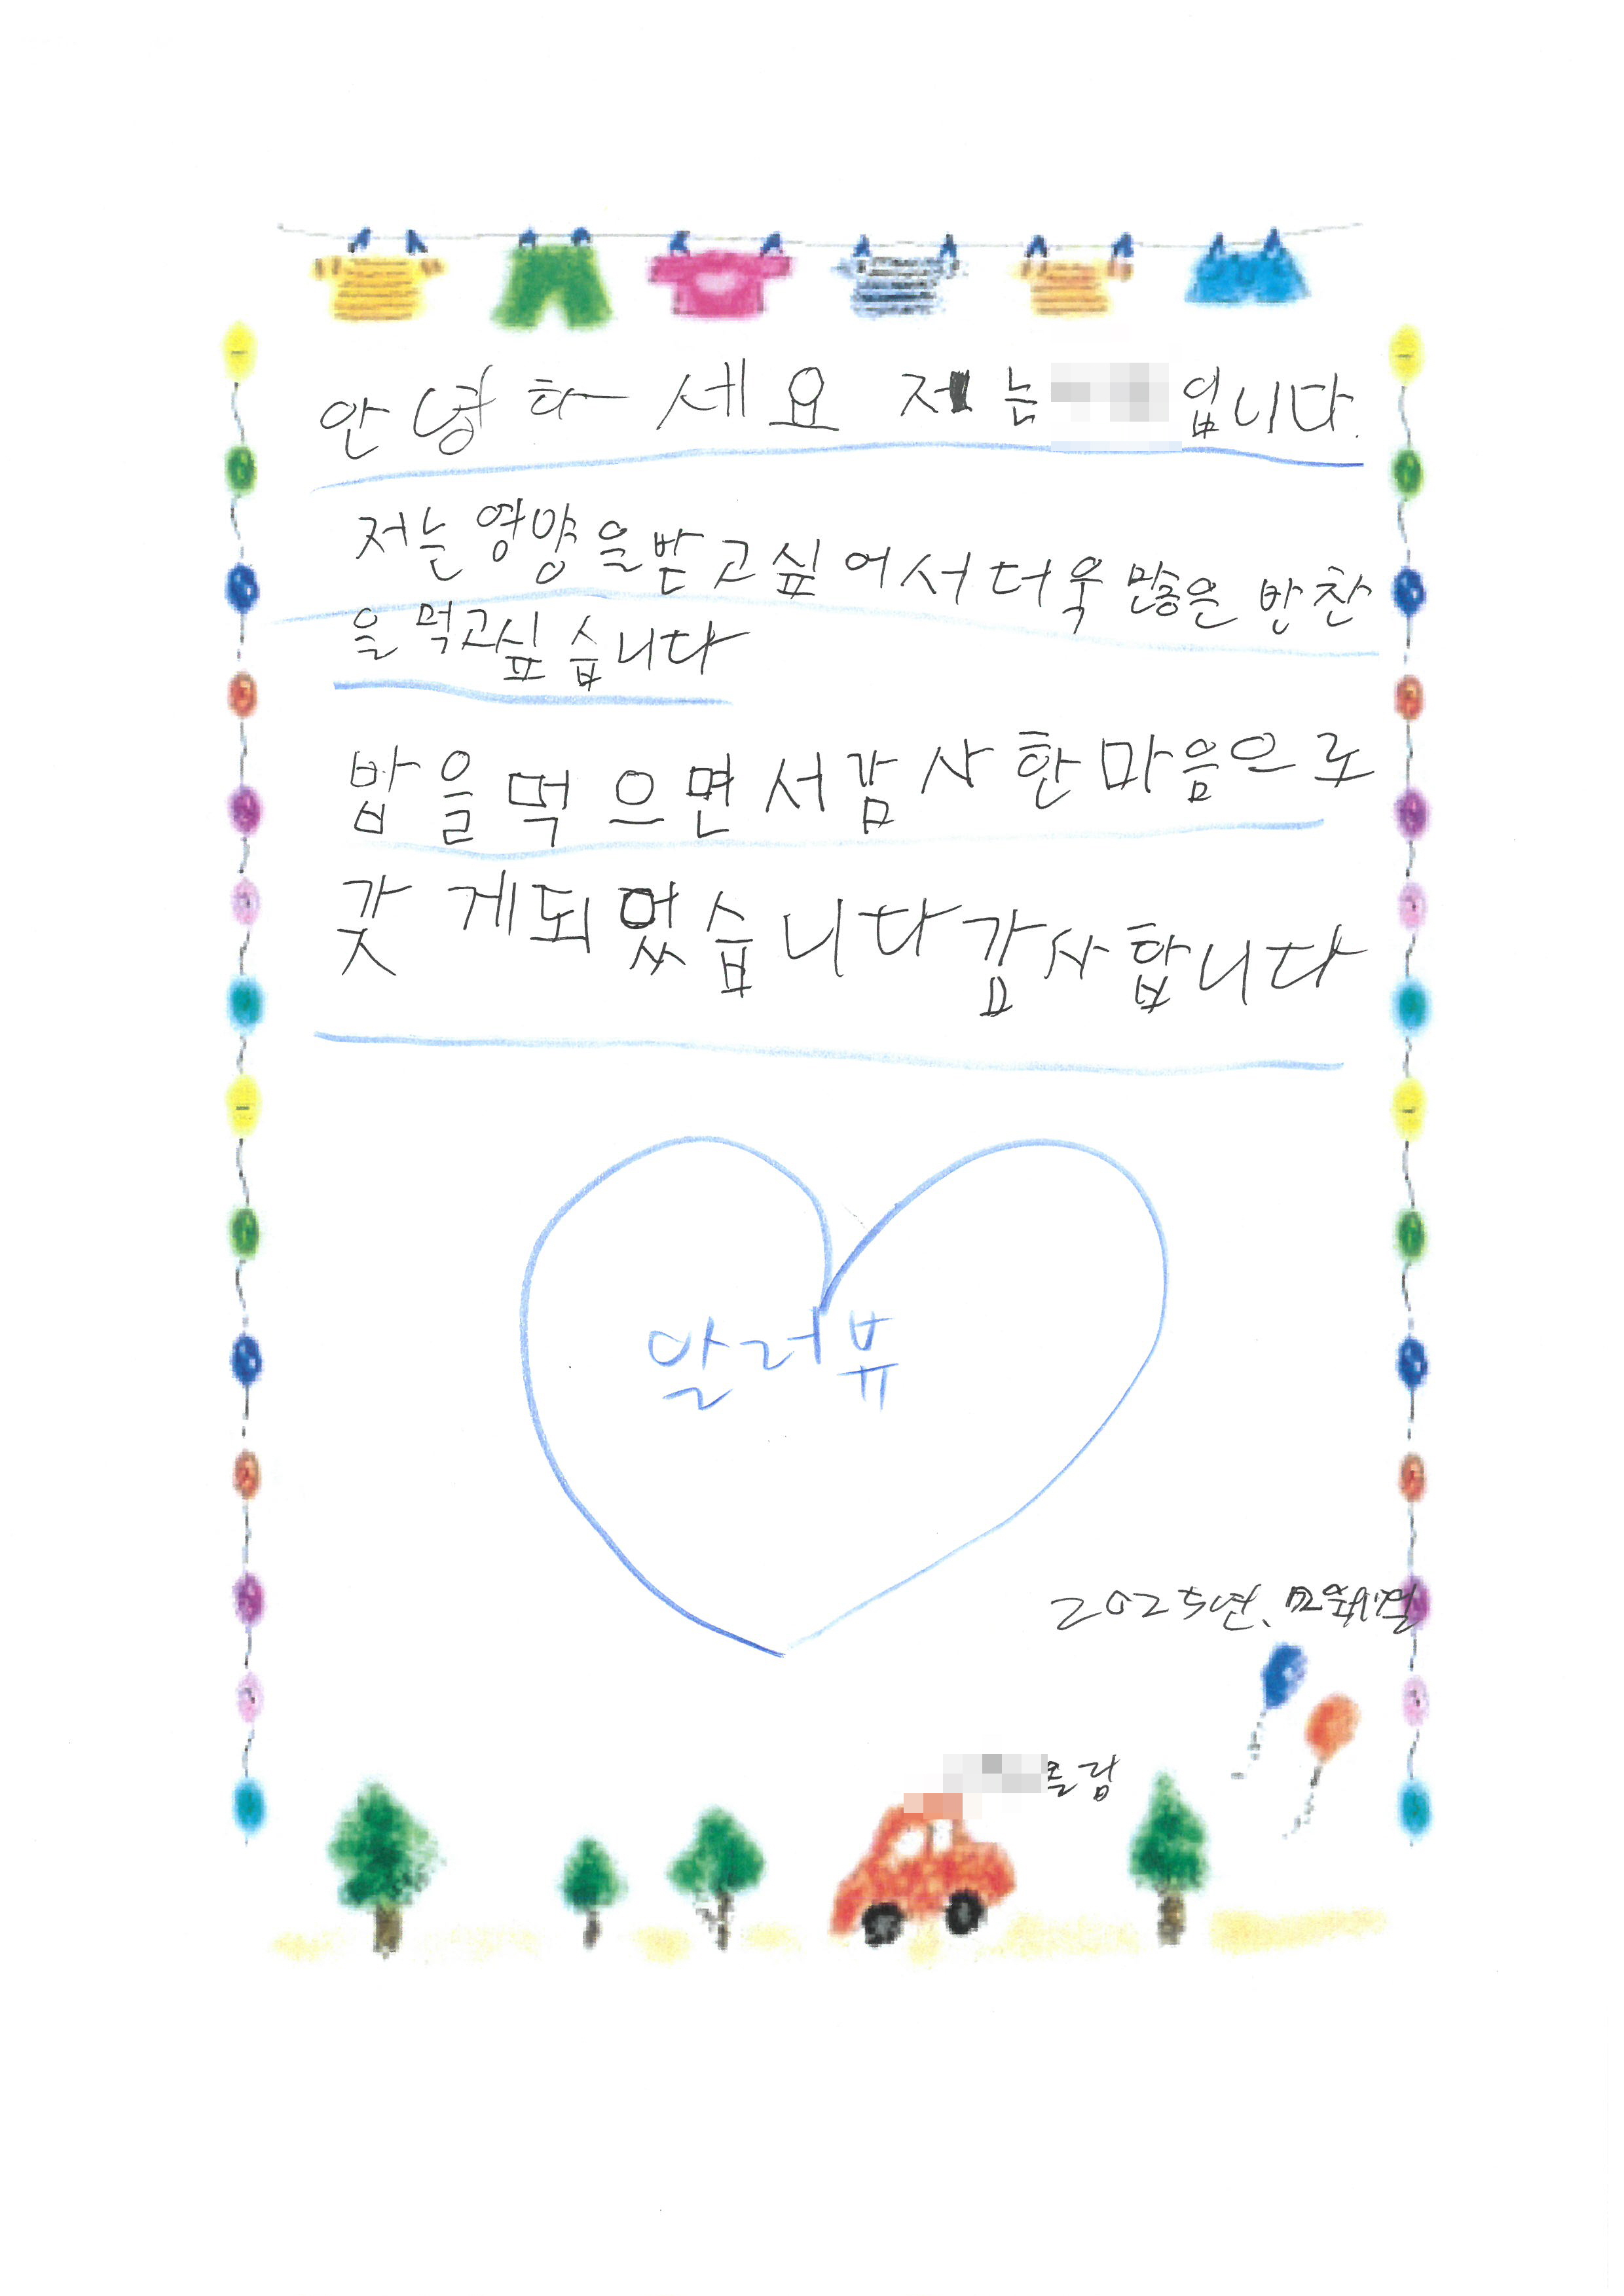 안녕하세요 저는 입니다.
저는 영양을받고싶어서더욱 많은 반찬
을 먹고싶습니다
밥을먹으면서감사한마음으로
갖게되었습니다감사합니다
알러뷰
2025년.
올림